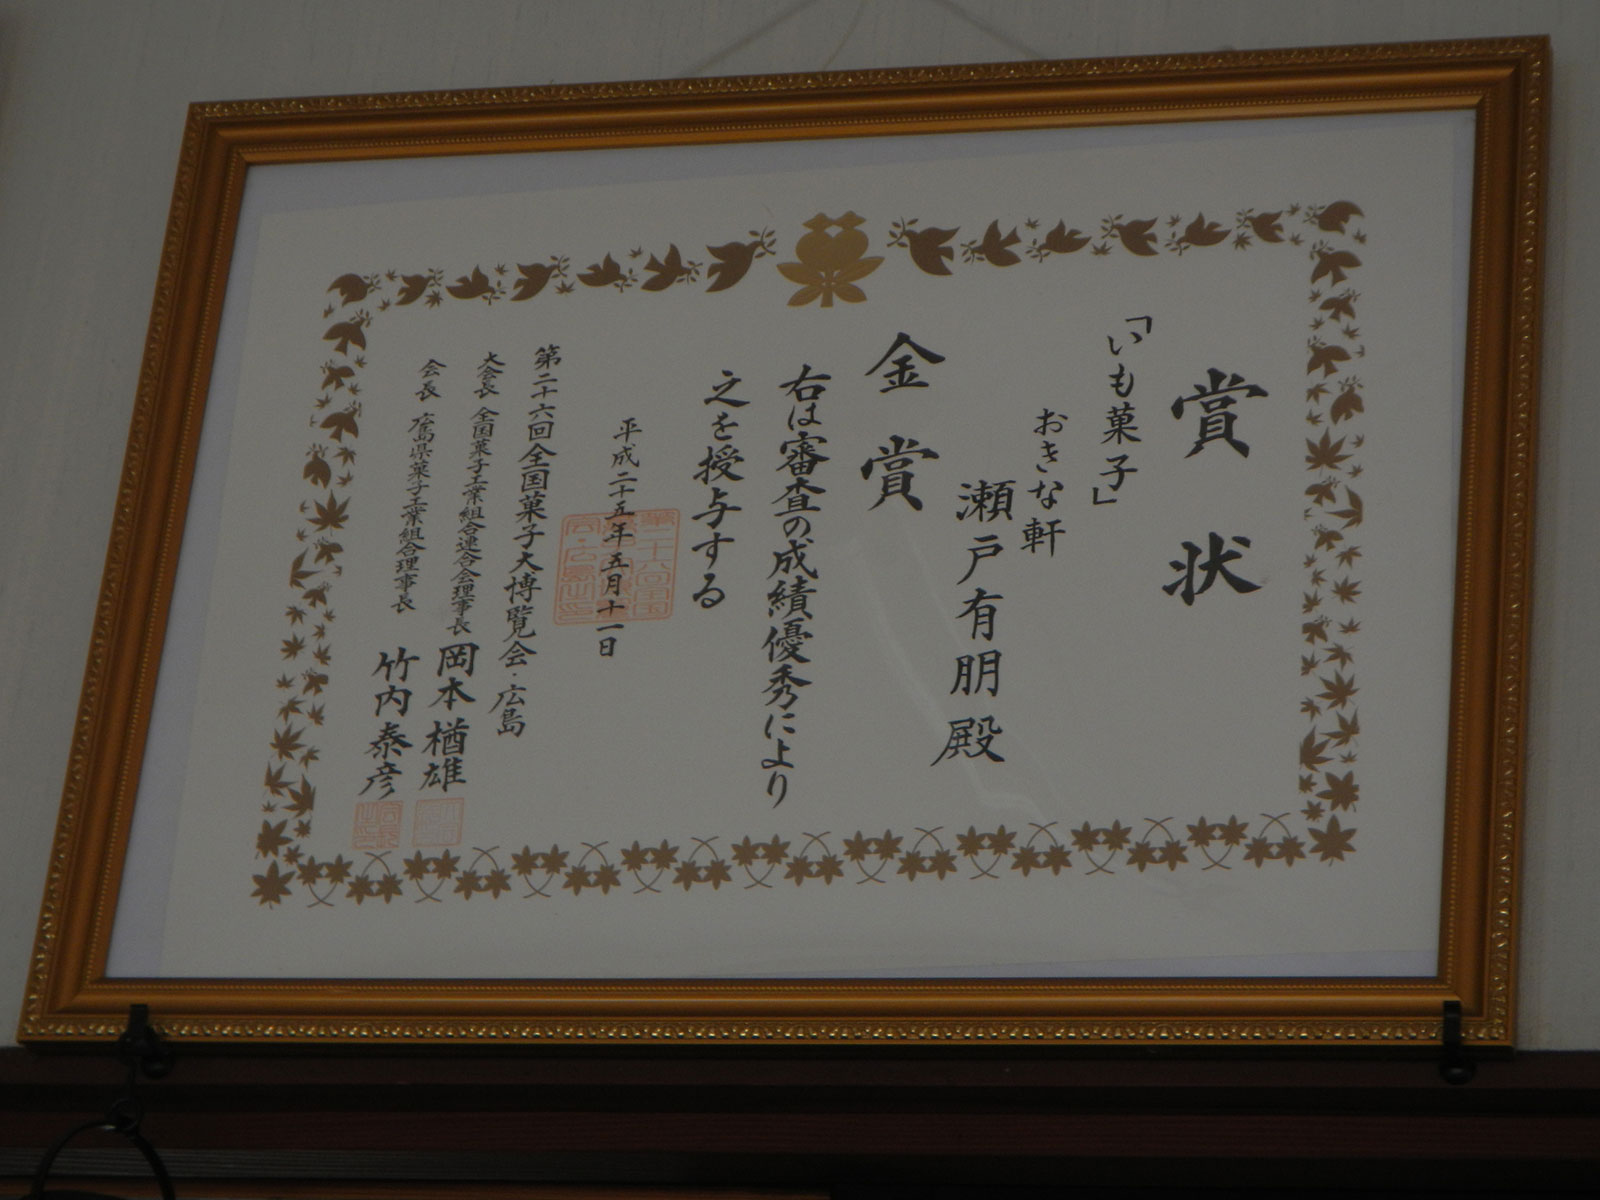 賞状
「いも菓子」
おきな軒
瀬戸有朋殿
金賞
右は審査の成績優秀により
之を授与する
平成二十五年五月十一日
第二十六回全国菓子大博覧会・広島
大会長 全国菓子工業組合連合会理事長 岡本楢雄
会長 広島県菓子工業組合理事長 竹内泰彦